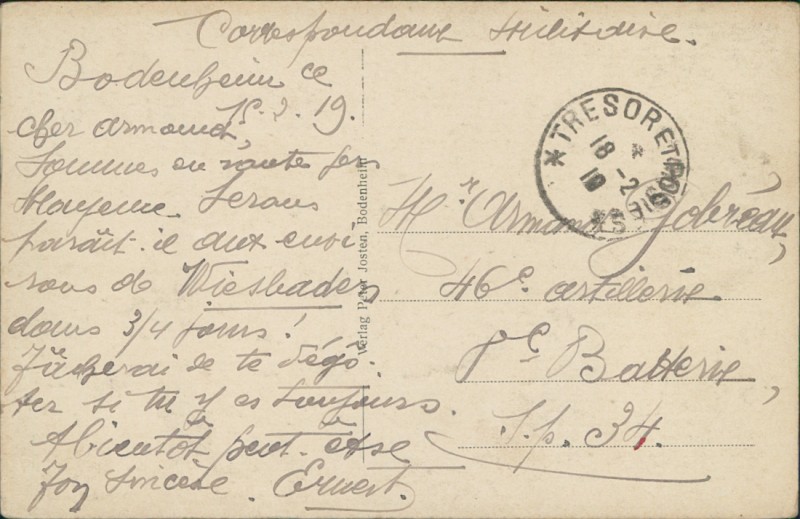 Correspondance Militaire.
Bodenheim ce
15.2.19.
cher Armand,
Sommes en route pour
Mayence. Serons
paraît-il aux envi-
rons de Wiesbaden
dans 3/4 jours!
Tâcherai de te dégô-
ter si tu y es toujours.
A bientôt peut-être
Ton sincère. Ernest.
Verlag Peter Josten, Bodenheim
* TRESOR ET POSTES *
18-2
19
Mr Armand Gobréau,
46e artillerie
Batterie,
S.p. 34.